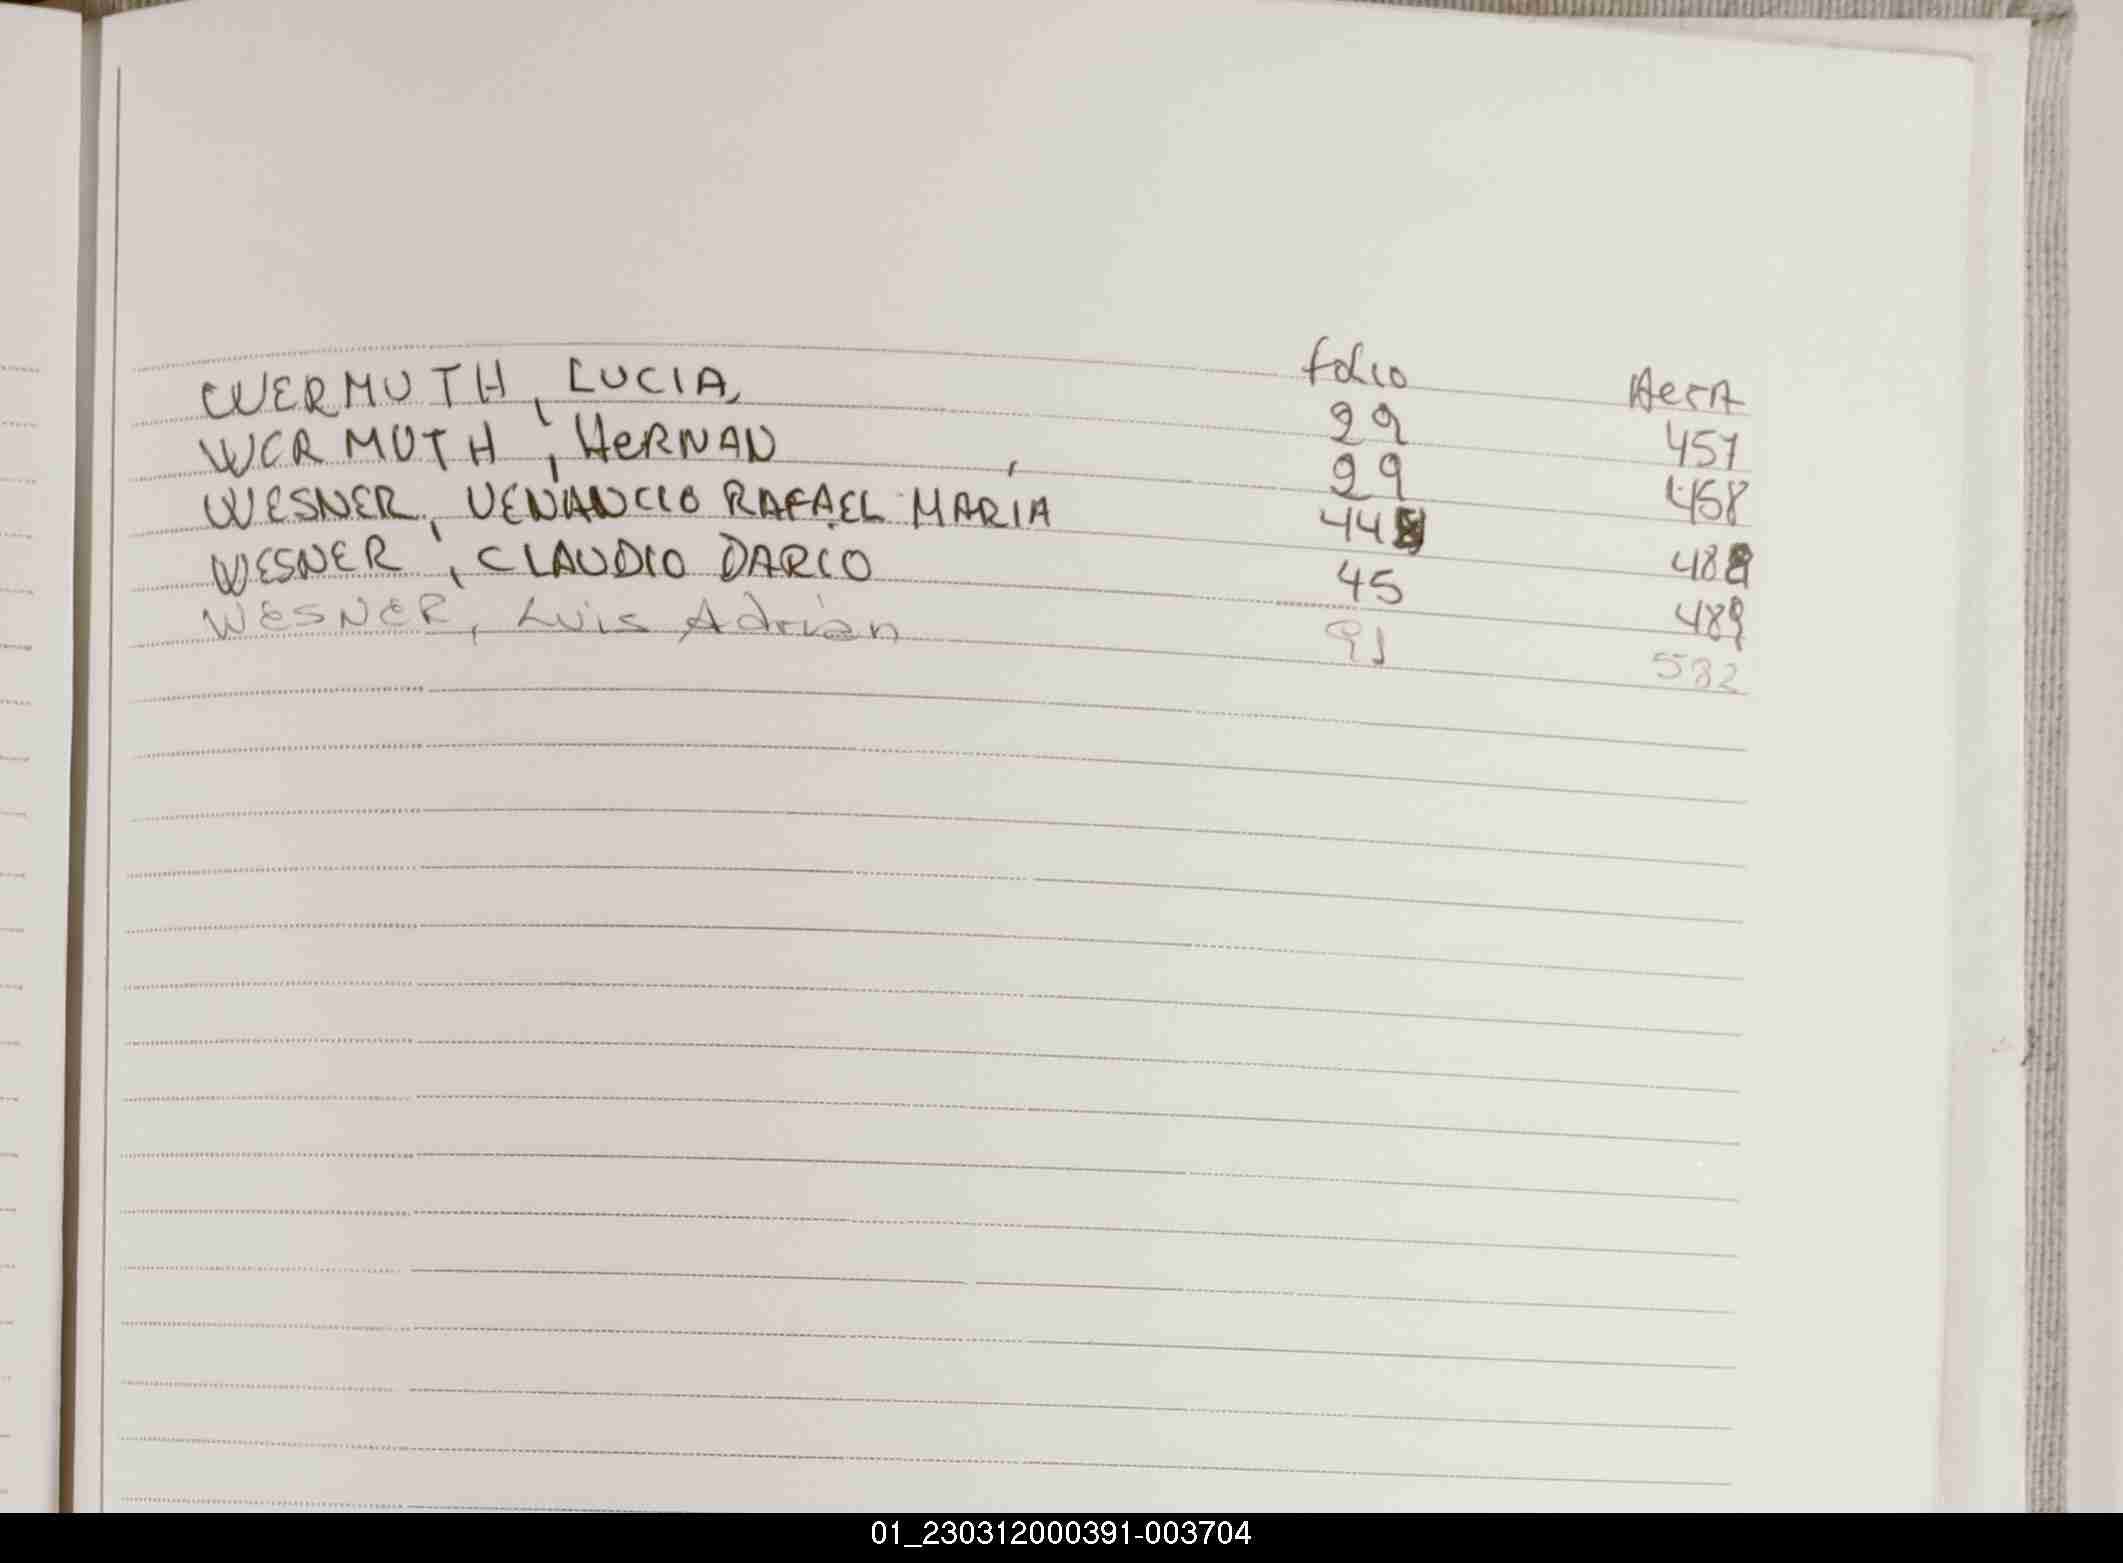 folio Acta
WERMUTH, LUCIA, 29 457
WERMUTH, HERNAN 29 458
WESNER, VENANCIO RAFAEL MARÍA 44 488
WESNER, CLAUDIO DARIO 45 489
WESNER, Luis Adrian 91 582
01_230312000391-003704